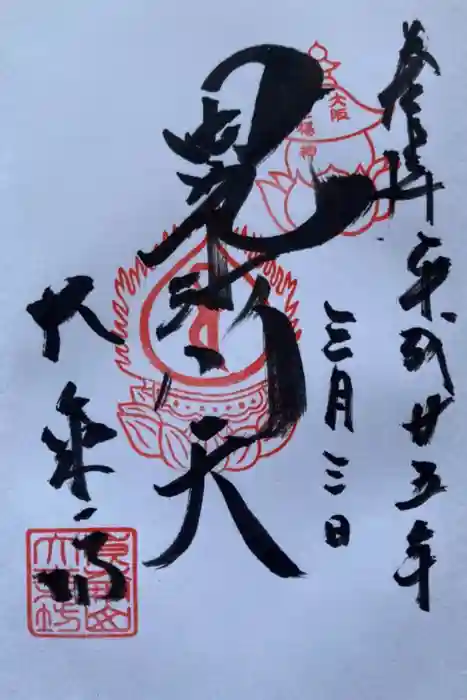 奉拝 平成廿五年
三月三日
大阪
七福神
毘沙門天
大乗坊